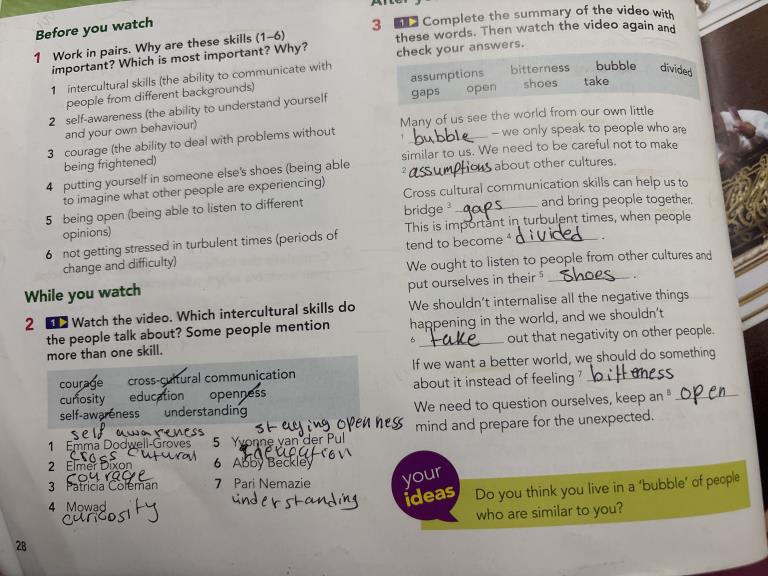 Before you watch
1 Work in pairs. Why are these skills (1–6)
important? Which is most important? Why?
1 intercultural skills (the ability to communicate with
people from different backgrounds)
2 self-awareness (the ability to understand yourself
and your own behaviour)
3 courage (the ability to deal with problems without
being frightened)
4 putting yourself in someone else's shoes (being able
to imagine what other people are experiencing)
5 being open (being able to listen to different
opinions)
6 not getting stressed in turbulent times (periods of
change and difficulty)
While you watch
2 1 Watch the video. Which intercultural skills do
the people talk about? Some people mention
more than one skill.
courage cross-cultural communication
curiosity education openness
self-awareness understanding
self awareness
1 Emma Dodwell-Groves
cross cutural
2 Elmer Dixon
courage
3 Patricia Coleman
4 Mowad
curiosity
staying openness
5 Yvonne van der Pul
education
6 Abby Beckley
7 Pari Nemazie
understanding
28
3 1 Complete the summary of the video with
these words. Then watch the video again and
check your answers.
assumptions bitterness bubble divided
gaps open shoes take
Many of us see the world from our own little
1 bubble – we only speak to people who are
similar to us. We need to be careful not to make
2 assumptions about other cultures.
Cross cultural communication skills can help us to
bridge 3 gaps and bring people together.
This is important in turbulent times, when people
tend to become 4 divided.
We ought to listen to people from other cultures and
put ourselves in their 5 shoes.
We shouldn't internalise all the negative things
happening in the world, and we shouldn't
6 take out that negativity on other people.
If we want a better world, we should do something
about it instead of feeling 7 bitteness
We need to question ourselves, keep an 8 open
mind and prepare for the unexpected.
your
ideas
Do you think you live in a 'bubble' of people
who are similar to you?